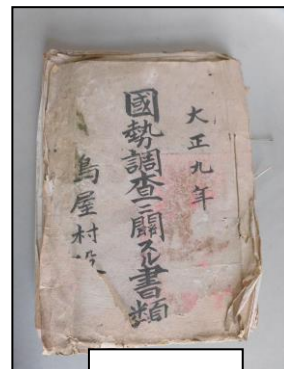 大正九年
國勢調査ニ關スル書類
鳥屋村役